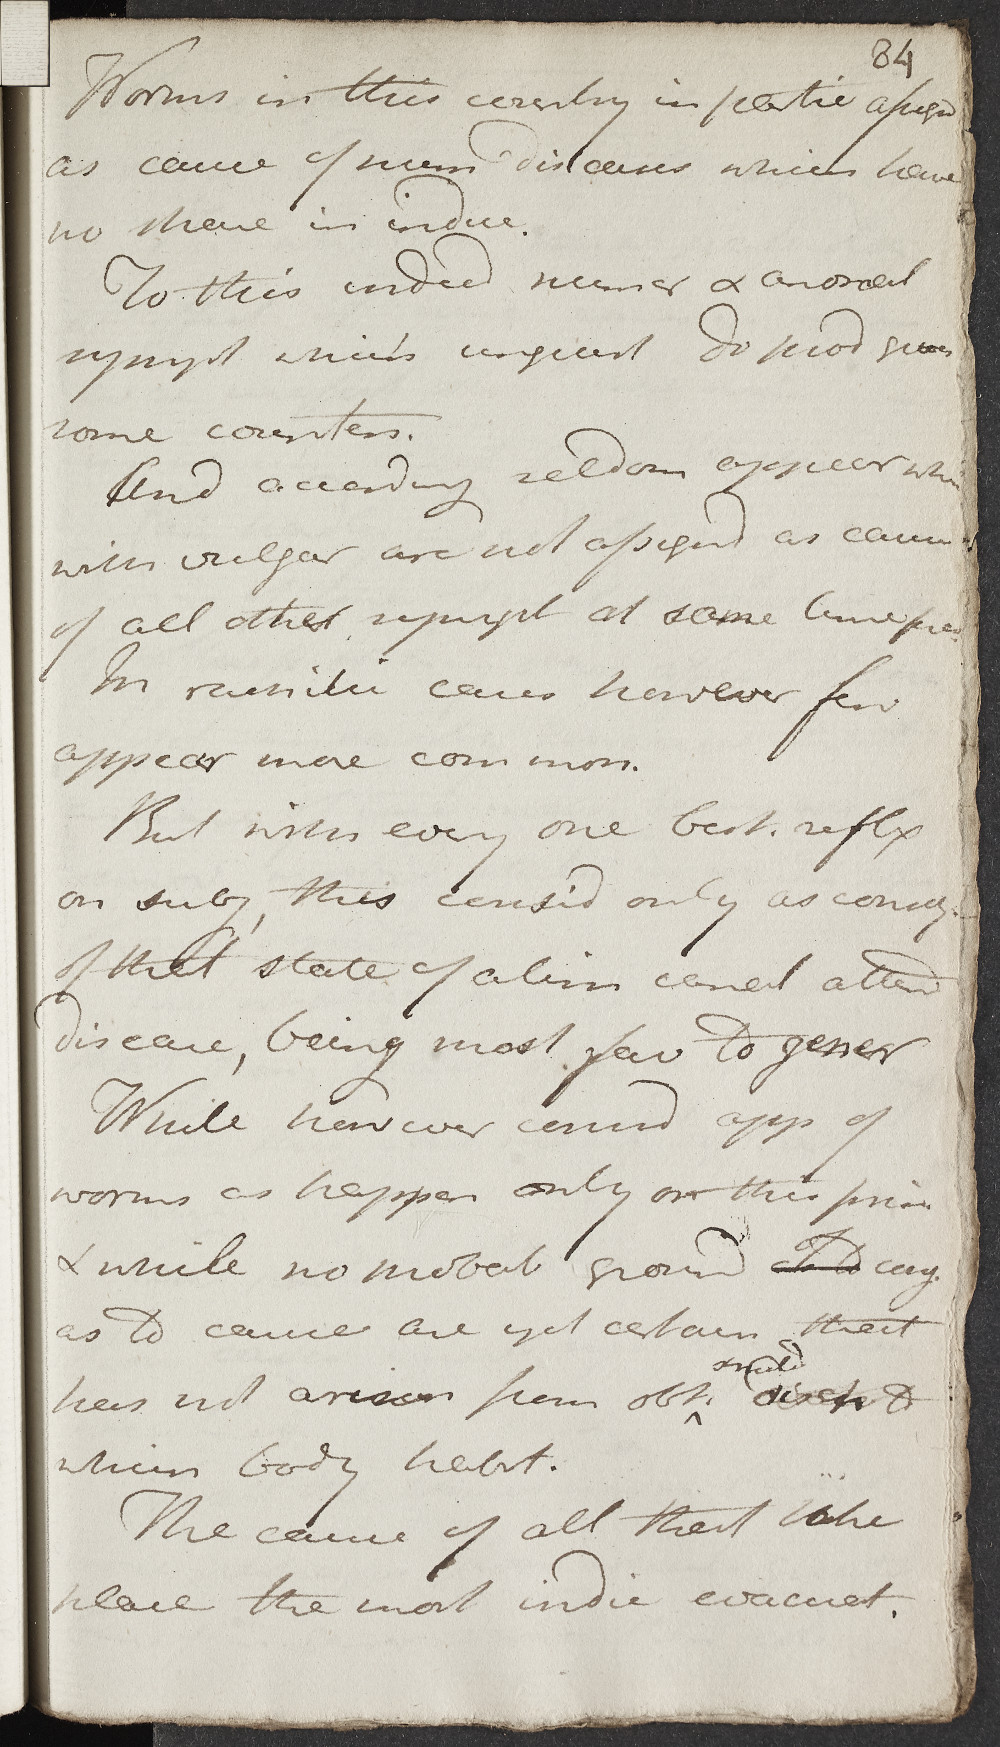 84
Worms in this country in partic assign
as cause of num diseases which have
no share in induc.
To this indeed numer & anomal
sympt which unquest do prod give
some counten.
And according seldom appear whi
with vulgar are not assignd as caus
of all other sympt at same time pres
In similar cases however few
appear more common.
But with every one best. reflx
on subj, this considd only as conseq.
of that state of alim canal attend
disease, being most fav to gener
While however consid app of
worms as happen only on this prin
& while no probab ground conj.
as to cause are yet certain that
has not arisen from obt. small
which body habit.
The cause of all that take
place the most indic evacuat.